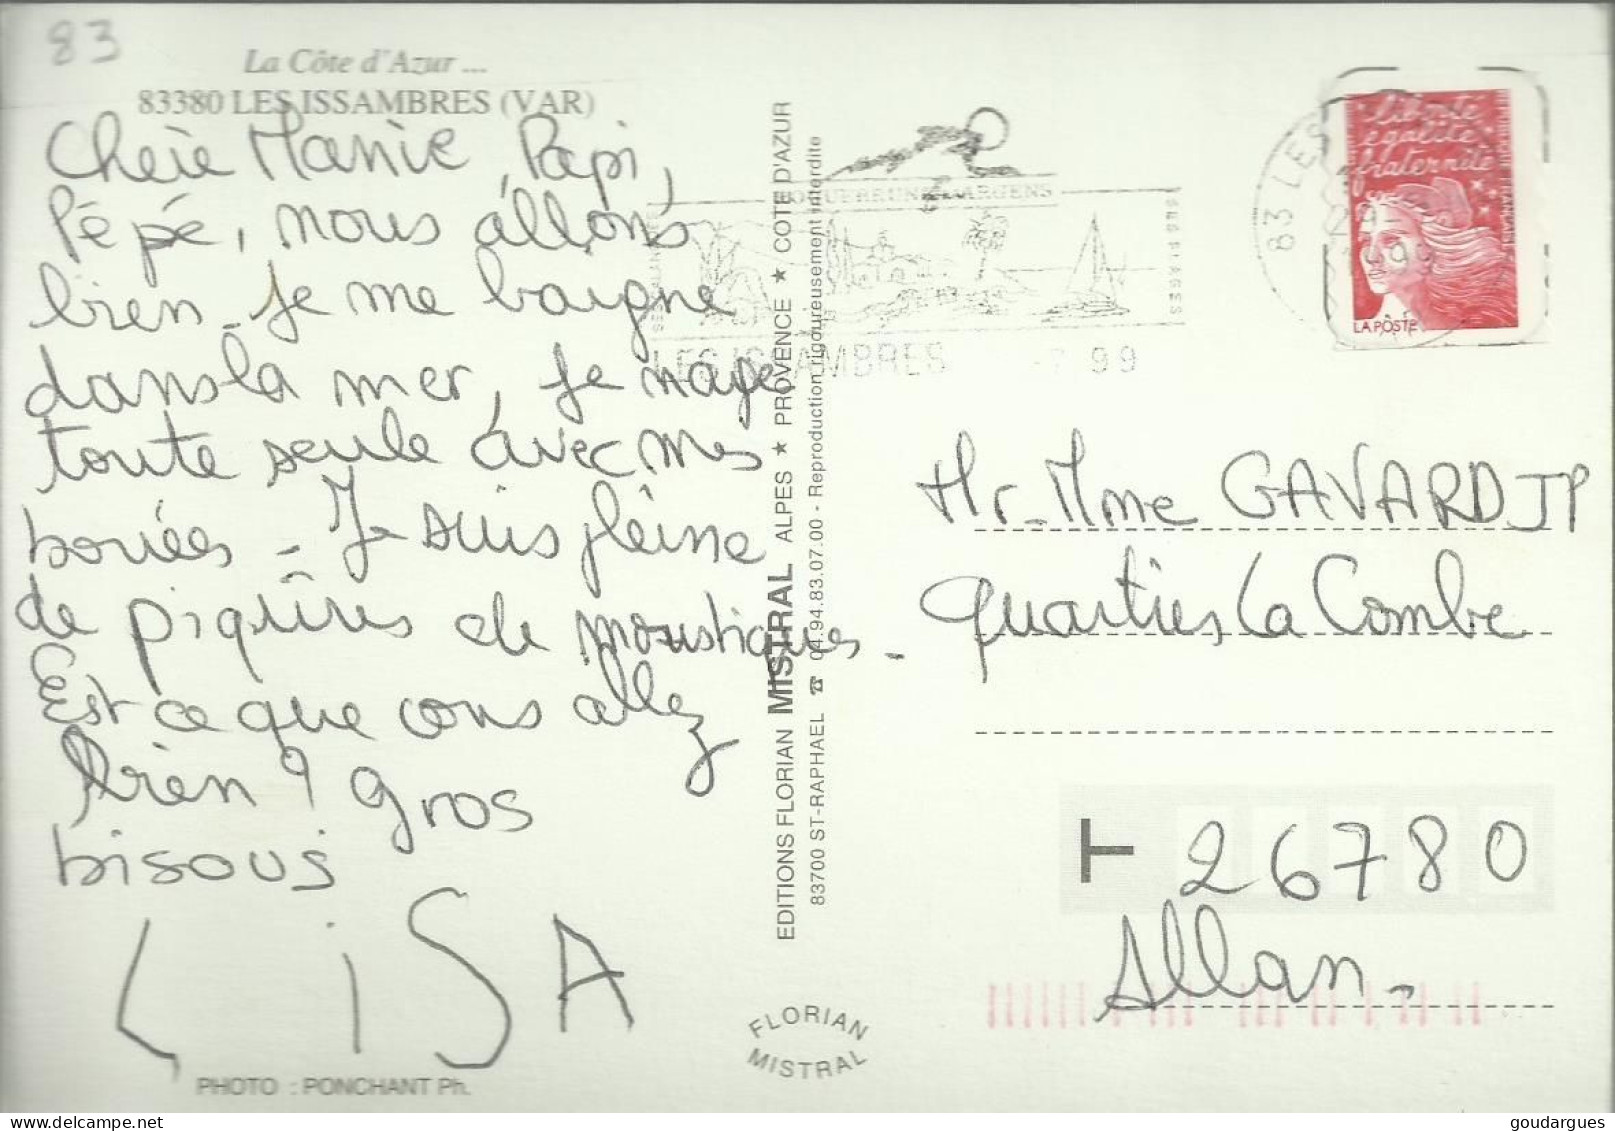 83
La Côte d'Azur ...
83380 LES ISSAMBRES (VAR)
Chère Mamie Papi,
Pépé, nous allons
bien. Je me baigne
dans la mer, Je nage
toute seule avec mes
bouées - Je suis pleine
de piqûres de moustiques.
Est ce que vous allez
bien ? Gros
bisous
LiSA
PHOTO : PONCHANT Ph.
EDITIONS FLORIAN MISTRAL ALPES ★ PROVENCE ★ COTE D'AZUR
83700 ST-RAPHAEL ☎ 04.94.83.07.00 - Reproduction rigoureusement interdite
FLORIAN
MISTRAL
ROQUEBRUNE S/ARGENS
SES PLAGES
LES ISSAMBRES -7 99
83 LES
liberté
égalité
fraternité
LA POSTE
Mr. Mme GAVARD JP
Quartier La Combe
26780
Allan.
goudargues